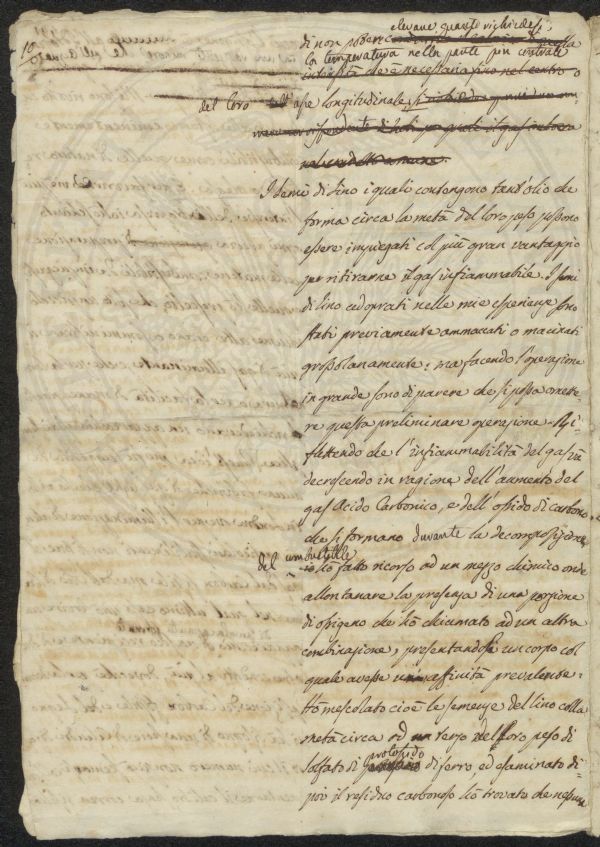 10
elevare quanto richiedesi
di non potere
la temperatura nella parte piu centrale
intensità che è necessaria sino nel centro o
del loro asse longitudinale,
I semi di lino i quali contengono tant'olio che
forma circa la metà del loro peso possono
essere impiegati col più gran vantaggio
per ritirarne il gas infiammabile. I semi
di lino adoprati nelle mie esperienze sono
stati previamente ammaccati o macinati
grossolanamente: ma facendo l'operazione
in grande sono di parere che si possa omette-
re questa preliminare operazione. Ri-
flettendo che l'infiammabilità del gas và
decrescendo in ragione dell'aumento del
gas Acido Carbonico, e dell'ossido di carbone
che si formano durante la decomposizione
del combustibile
io hò fatto ricorso ad un mezzo chimico onde
allontanare la presenza di una porzione
di ossigeno che hò chiamato ad un altra
combinazione, presentandole un corpo col
quale avesse un affinità prevalente.
Hò mescolato cioè le semenze del lino colla
metà circa od un terzo del loro peso di
protossido
Solfato di di ferro, ed esaminato di-
poi il residuo carbonoso hò trovato che nessuna